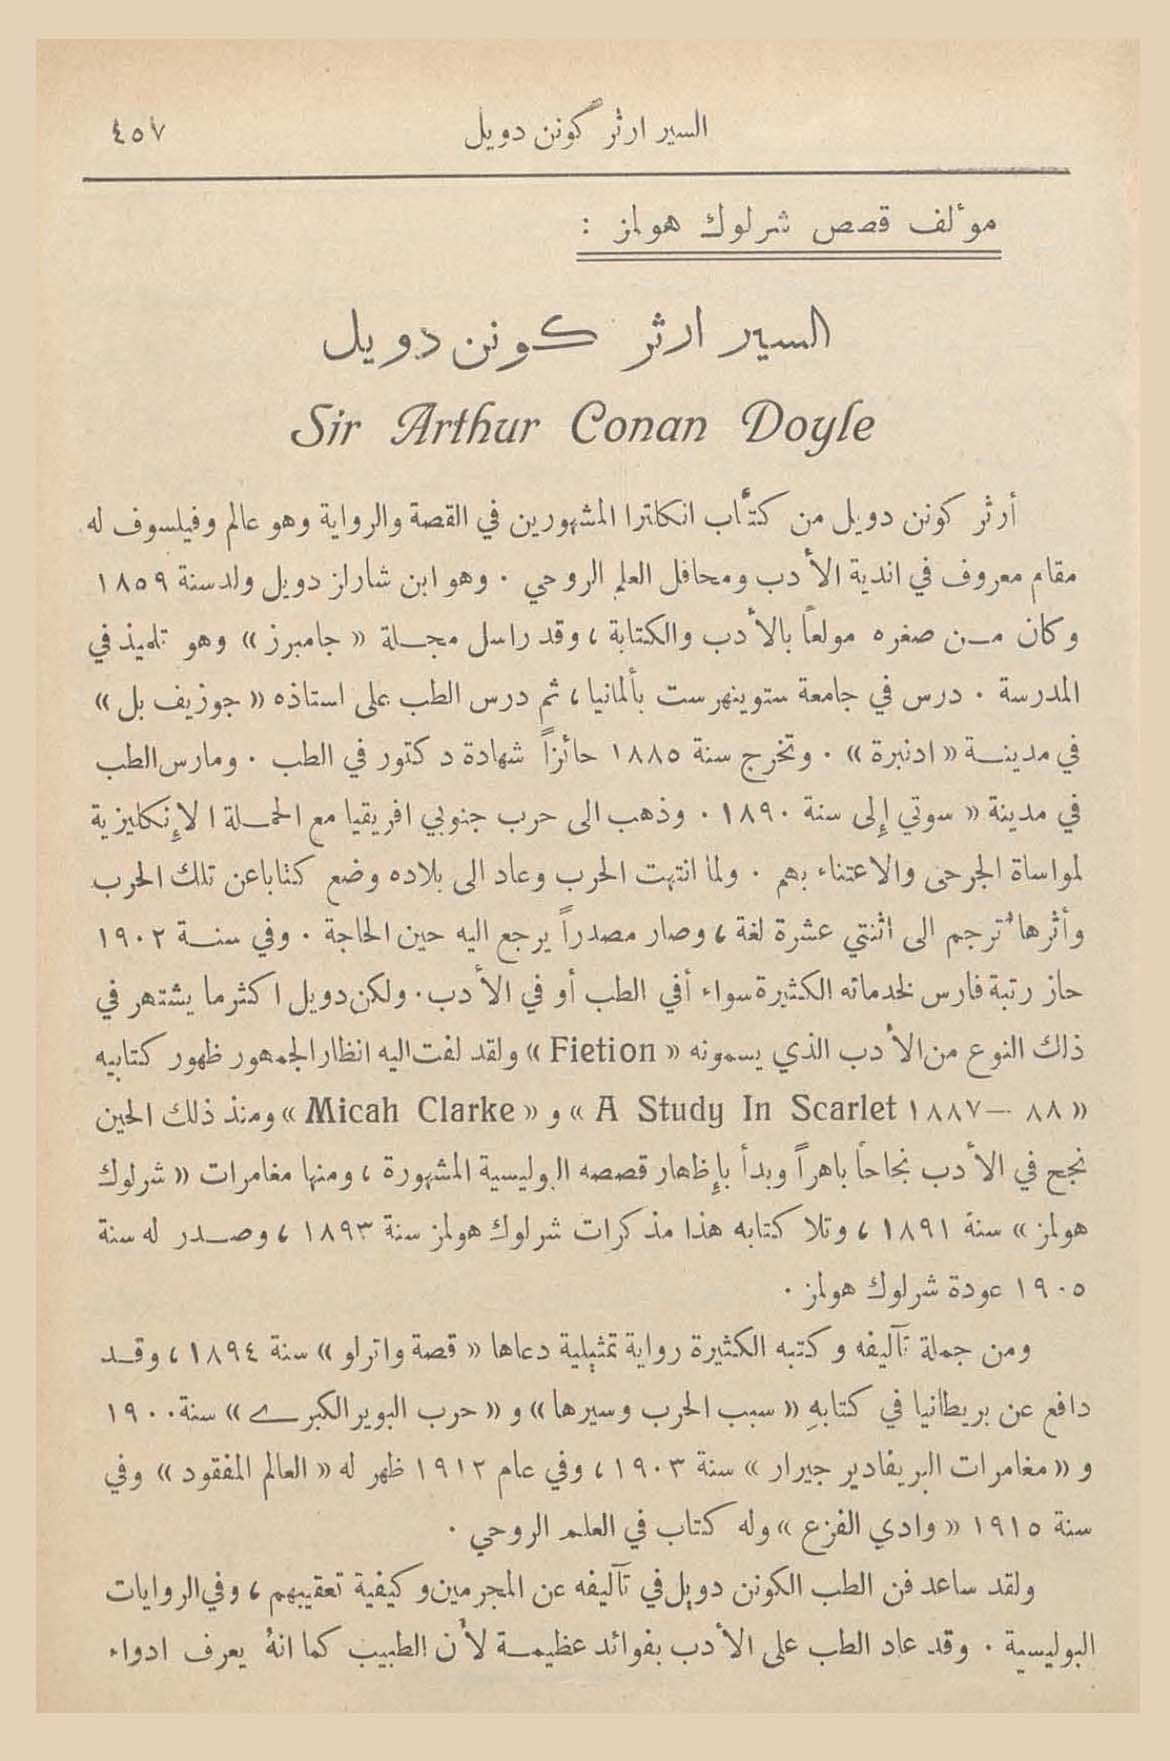 السير ارثر كونن دويل ٤٥٧
موٴلف قصص شرلوك هولمز :
السير ارثر كونن دويل
Sir Arthur Conan Doyle
أرثر كونن دويل من كتَّاب انكلترا المشهورين في القصة والرواية وهو عالم وفيلسوف له
مقام معروف في اندية الأدب ومحافل العلم الروحي . وهو ابن شارلز دويل ولد سنة ١٨٥٩
وكان من صغره مولعاً بالأدب والكتابة ، وقد راسل مجلة « جامبرز » وهو تلميذ في
المدرسة . درس في جامعة ستوينهرست بألمانيا ، ثم درس الطب على استاذه « جوزيف بل »
في مدينة « ادنبرة » . وتخرج سنة ١٨٨٥ حائزاً شهادة دكتور في الطب . ومارس الطب
في مدينة « سوتي إلى سنة ١٨٩٠ . وذهب الى حرب جنوبي افريقيا مع الحملة الإنكليزية
لمواساة الجرحى والاعتناء بهم . ولما انتهت الحرب وعاد الى بلاده وضع كتابا عن تلك الحرب
وأثرها تُرجم الى اثنتي عشرة لغة ، وصار مصدراً يرجع اليه حين الحاجة . وفي سنة ١٩٠٢
حاز رتبة فارس لخدماته الكثيرة سواء أفي الطب أو في الأدب . ولكن دويل اكثر ما يشتهر في
ذلك النوع من الأدب الذي يسمونه « Fietion » ولقد لفت اليه انظار الجمهور ظهور كتابيه
« A Study In Scarlet ١٨٨٧ — ٨٨ » و « Micah Clarke » ومنذ ذلك الحين
نجح في الأدب نجاحاً باهراً وبدأ بإظهار قصصه البوليسية المشهورة ، ومنها مغامرات « شرلوك
هولمز » سنة ١٨٩١ ، وتلا كتابه هذا مذكرات شرلوك هولمز سنة ١٨٩٣ ، وصدر له سنة
١٩٠٥ عودة شرلوك هولمز .
ومن جملة تآليفه وكتبه الكثيرة رواية تمثيلية دعاها « قصة واترلو » سنة ١٨٩٤ ، وقد
دافع عن بريطانيا في كتابهِ « سبب الحرب وسيرها » و « حرب البوير الكبرى » سنة ١٩٠٠
و « مغامرات البريغادير جيرار » سنة ١٩٠٣ ، وفي عام ١٩١٢ ظهر له « العالم المفقود » وفي
سنة ١٩١٥ « وادي الفزع » وله كتاب في العلم الروحي .
ولقد ساعد فن الطب الكونن دويل في تآليفه عن المجرمين وكيفية تعقيبهم ، وفي الروايات
البوليسية . وقد عاد الطب على الأدب بفوائد عظيمة لأن الطبيب كما انهُ يعرف ادواء